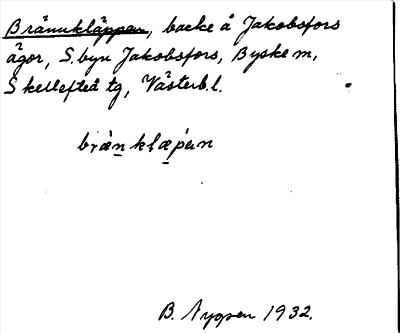 Brännkläppen, backe å Jakobsfors
ägor, S. byn Jakobsfors, Byske sn,
Skellefteå tg, Västerb.l.
brän klæpen
B. Nygren 1932.